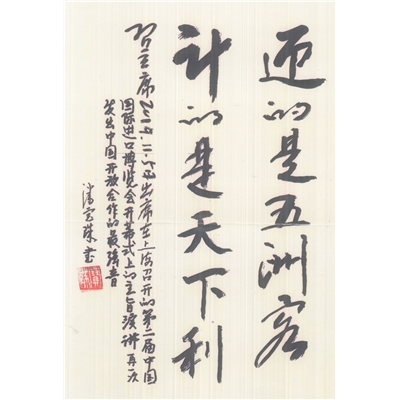 迎的是五洲客
计的是天下利
习主席2019.11.5日出席在上海召开的第二届中国
国际进口博览会开幕式上的主旨演讲再一次
发出中国开放合作的最强音
潘宝珠书